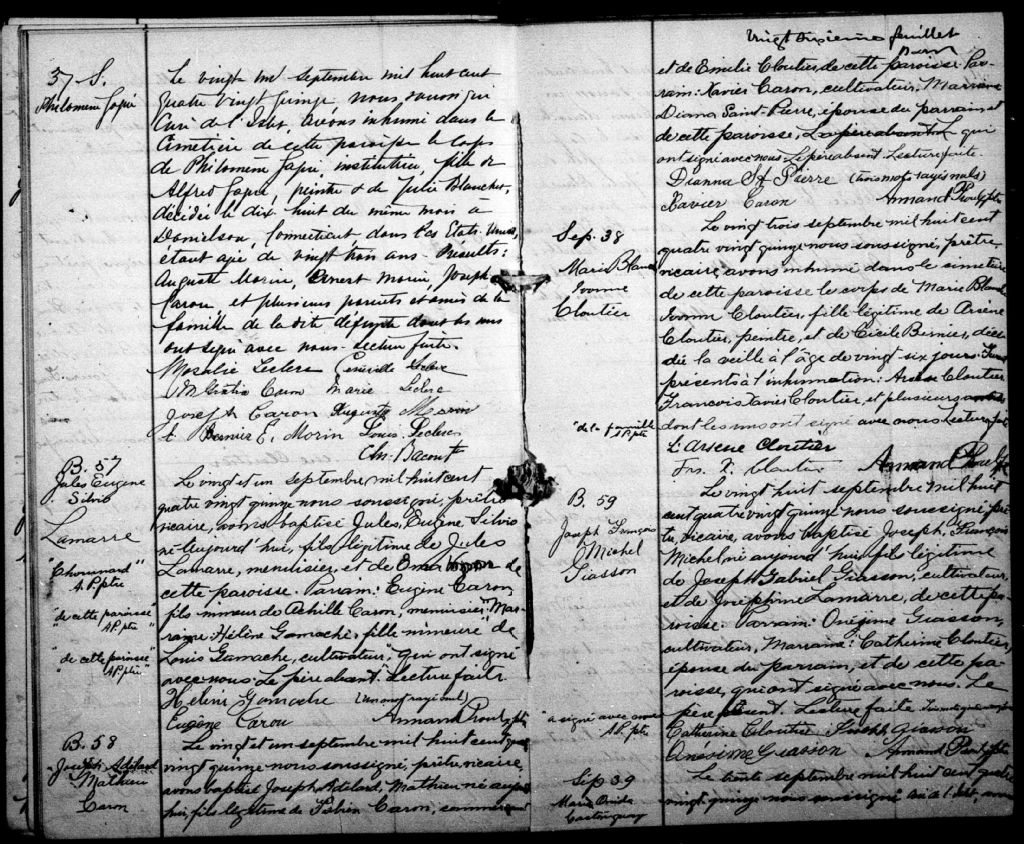 37 S.
Philomène
Le vingt un septembre mil huit cent
quatre vingt quinze nous soussigné
Curé de l'Islet, avons inhumé dans le
Cimetière de cette paroisse le corps
de Philomène institutrice, fille de
Alfred peintre & de Julie Blanchet,
décédée le dix-huit du même mois à
Danielson, Connecticut dans les Etats-Unis
étant agée de vingt trois ans. Présents:
Auguste Morin, Ernest Morin, Joseph
Caron, et plusieurs parents et amis de la
famille de la dite défunte dont les uns
ont signé avec nous. Lecture faite.
Rosalie Leclerc Leclerc
Caron Marie Leclerc
Joseph Caron Auguste Morin
Bernier E. Morin Louis Leclerc
B. 57
Jules Eugène
Silvio
Lamarre
"Chouinard"
A.P. ptre
"de cette paroisse"
A.P. ptre
"de cette paroisse"
A.P. ptre
Le vingt et un septembre mil huit cent
quatre vingt quinze nous soussigné, prêtre
vicaire, avons baptisé Jules, Eugène Silvio
né aujourd'hui, fils légitime de Jules
Lamarre, menuisier, et de de
cette paroisse. Parrain: Eugène Caron
fils mineur de Achille Caron, menuisier. Mar-
raine: Hélène Gamache, fille mineure de
Louis Gamache, cultivateur, qui ont signé
avec nous. Le père absent. Lecture faite
Hélène Gamache (un mot rayé nul)
Eugène Caron Armand Proulx, ptre
B. 58
Joseph Adélard
Mathieu
Caron
Le vingt et un septembre mil huit cent quatre
vingt quinze nous soussigné, prêtre, vicaire,
avons baptisé Joseph, Adélard, Mathieu né aujour-
hui, fils légitime de Fabien Caron,
Vingt feuillet
et de Emélie Cloutier, de cette paroisse. Par-
rain: Xavier Caron, cultivateur, Marraine
Diana Saint-Pierre, épouse du parrain, et
de cette paroisse, Le père absent qui
ont signé avec nous. Le père absent. Lecture faite.
Dianna St Pierre (trois mots rayés nuls)
Xavier Caron Armand Proulx, ptre
Sep. 38
Marie Blanche
Ivonne
Cloutier
"de la famille"
A.P. ptre
Le vingt trois septembre mil huit cent
quatre vingt quinze nous soussigné, prêtre,
vicaire, avons inhumé dans le cimetière
de cette paroisse le corps de Marie Blanche
Ivonne Cloutier, fille légitime de Arsène
Cloutier, peintre, et de Cécile Bernier, décé-
dée la veille à l'âge de vingt six jours.
présents à l'inhumation: Arsène Cloutier
François Xavier Cloutier, et plusieurs
dont les uns ont signé avec nous. Lecture faite
L'Arsene Cloutier
Frs. X. Cloutier Armand Proulx, ptre
B. 59
Joseph François
Michel
Giasson
"a signé avec nous"
A.P. ptre
Le vingt huit septembre mil huit
cent quatre vingt quinze nous soussigné prê-
tre, vicaire, avons baptisé Joseph, François
Michel, né aujourd'hui, fils légitime
de Joseph Gabriel Giasson, cultivateur,
et de Joséphine Lamarre, de cette pa-
roisse. Parrain: Onésime Giasson,
cultivateur, Marraine: Catherine Cloutier,
épouse du parrain, et de cette pa-
roisse, qui ont signé avec nous. Le
père présent. Lecture faite.
Catherine Cloutier Joseph Giasson
Onésime Giasson Armand Proulx, ptre
Sép 39
Marie
Castonguay
Le trente septembre mil huit cent quatre
vingt quinze nous soussigné curé de l'Islet, avons